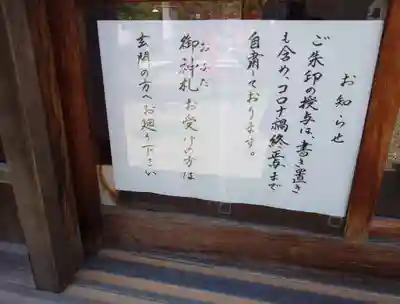 お知らせ
ご朱印の授与は、書き置き
も含め、コロナ禍終焉まで
自粛しております。
おふだ
御神札お受けの方は
玄関の方へお廻り下さい